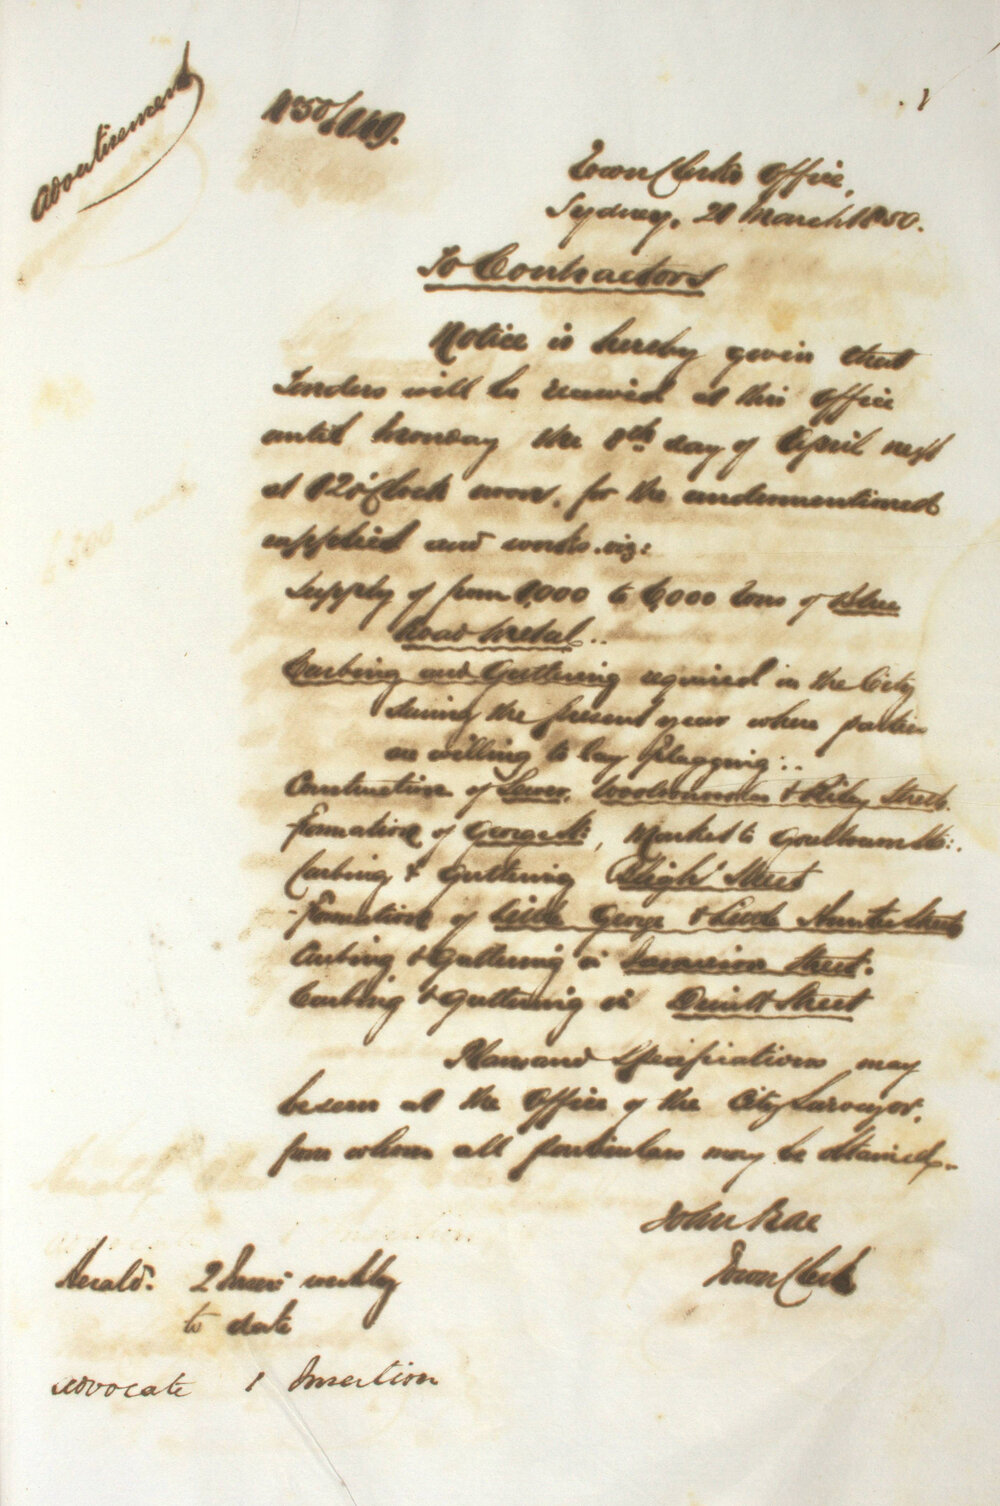 Advertisement
N° 50/149.
Town Clerk's Office,
Sydney, 21 March 1850.
To Contractors
Notice is hereby given that
Tenders will be received at this Office
until Monday the 8th day of April next
at 12 o'Clock noon, for the undermentioned
supplies and works. viz:
Supply of from 1,000 to 6,000 Tons of Blue
Road Metal..
Curbing and Guttering required in the City
during the present year where parties
are willing to lay flagging:..
Construction of Sewer, Woolloomooloo & Riley Streets.
Formation of George St:, Market to Goulburn St:.
Curbing & Guttering Bligh Street
Formation of Little George & Little Hunter Streets
Curbing & Guttering in Street.
Curbing & Guttering in Druitt Street
Plans and Specifications may
be seen at the Office of the City Surveyor,
from whom all particulars may be obtained.
John Rae
Town Clerk
Herald. 2 Times weekly
to date
Advocate 1 Insertion